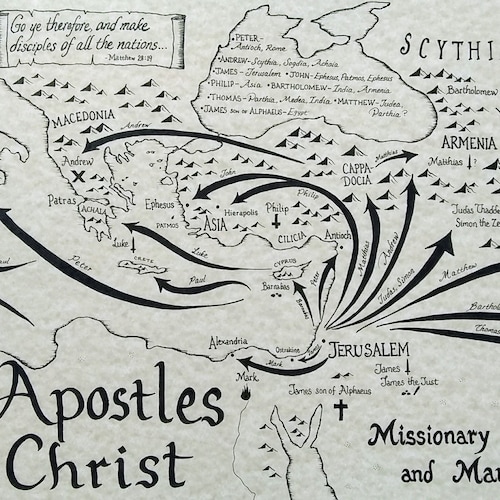 Go ye therefore, and make
disciples of all the nations...
- Matthew 28:19
•PETER-
Antioch, Rome
•ANDREW-Scythia, Sogdia, Achaia
•JAMES-Jerusalem •JOHN-Ephesus, Patmos, Ephesus
•PHILIP-Asia •BARTHOLOMEW-India, Armenia
•THOMAS-Parthia, Medea, India •MATTHEW-Judea,
Parthia?
•JAMES SON OF ALPHAEUS-Egypt
SCYTHI
Bartholomew
MACEDONIA
Andrew
ARMENIA
Matthias
Matthias ?
Andrew
CAPPA-
DOCIA
John
Philip
Patras
ACHAIA
Ephesus
Hierapolis
Philip
PATMOS
ASIA
Judas Thadd
Simon the Ze
CILICIA
Antioch
Luke
Luke
CRETE
CYPRUS
Peter
Paul
Barnabas
Barnabas
Peter
Matthias
Andrew
Judas, Simon
Matthew
Bartho
Thomas
Alexandria
Ostrakine
Mark
James
JERUSALEM
Mark
James
James the Just
James son of Alphaeus
Apostles
Christ
Missionary
and Mar